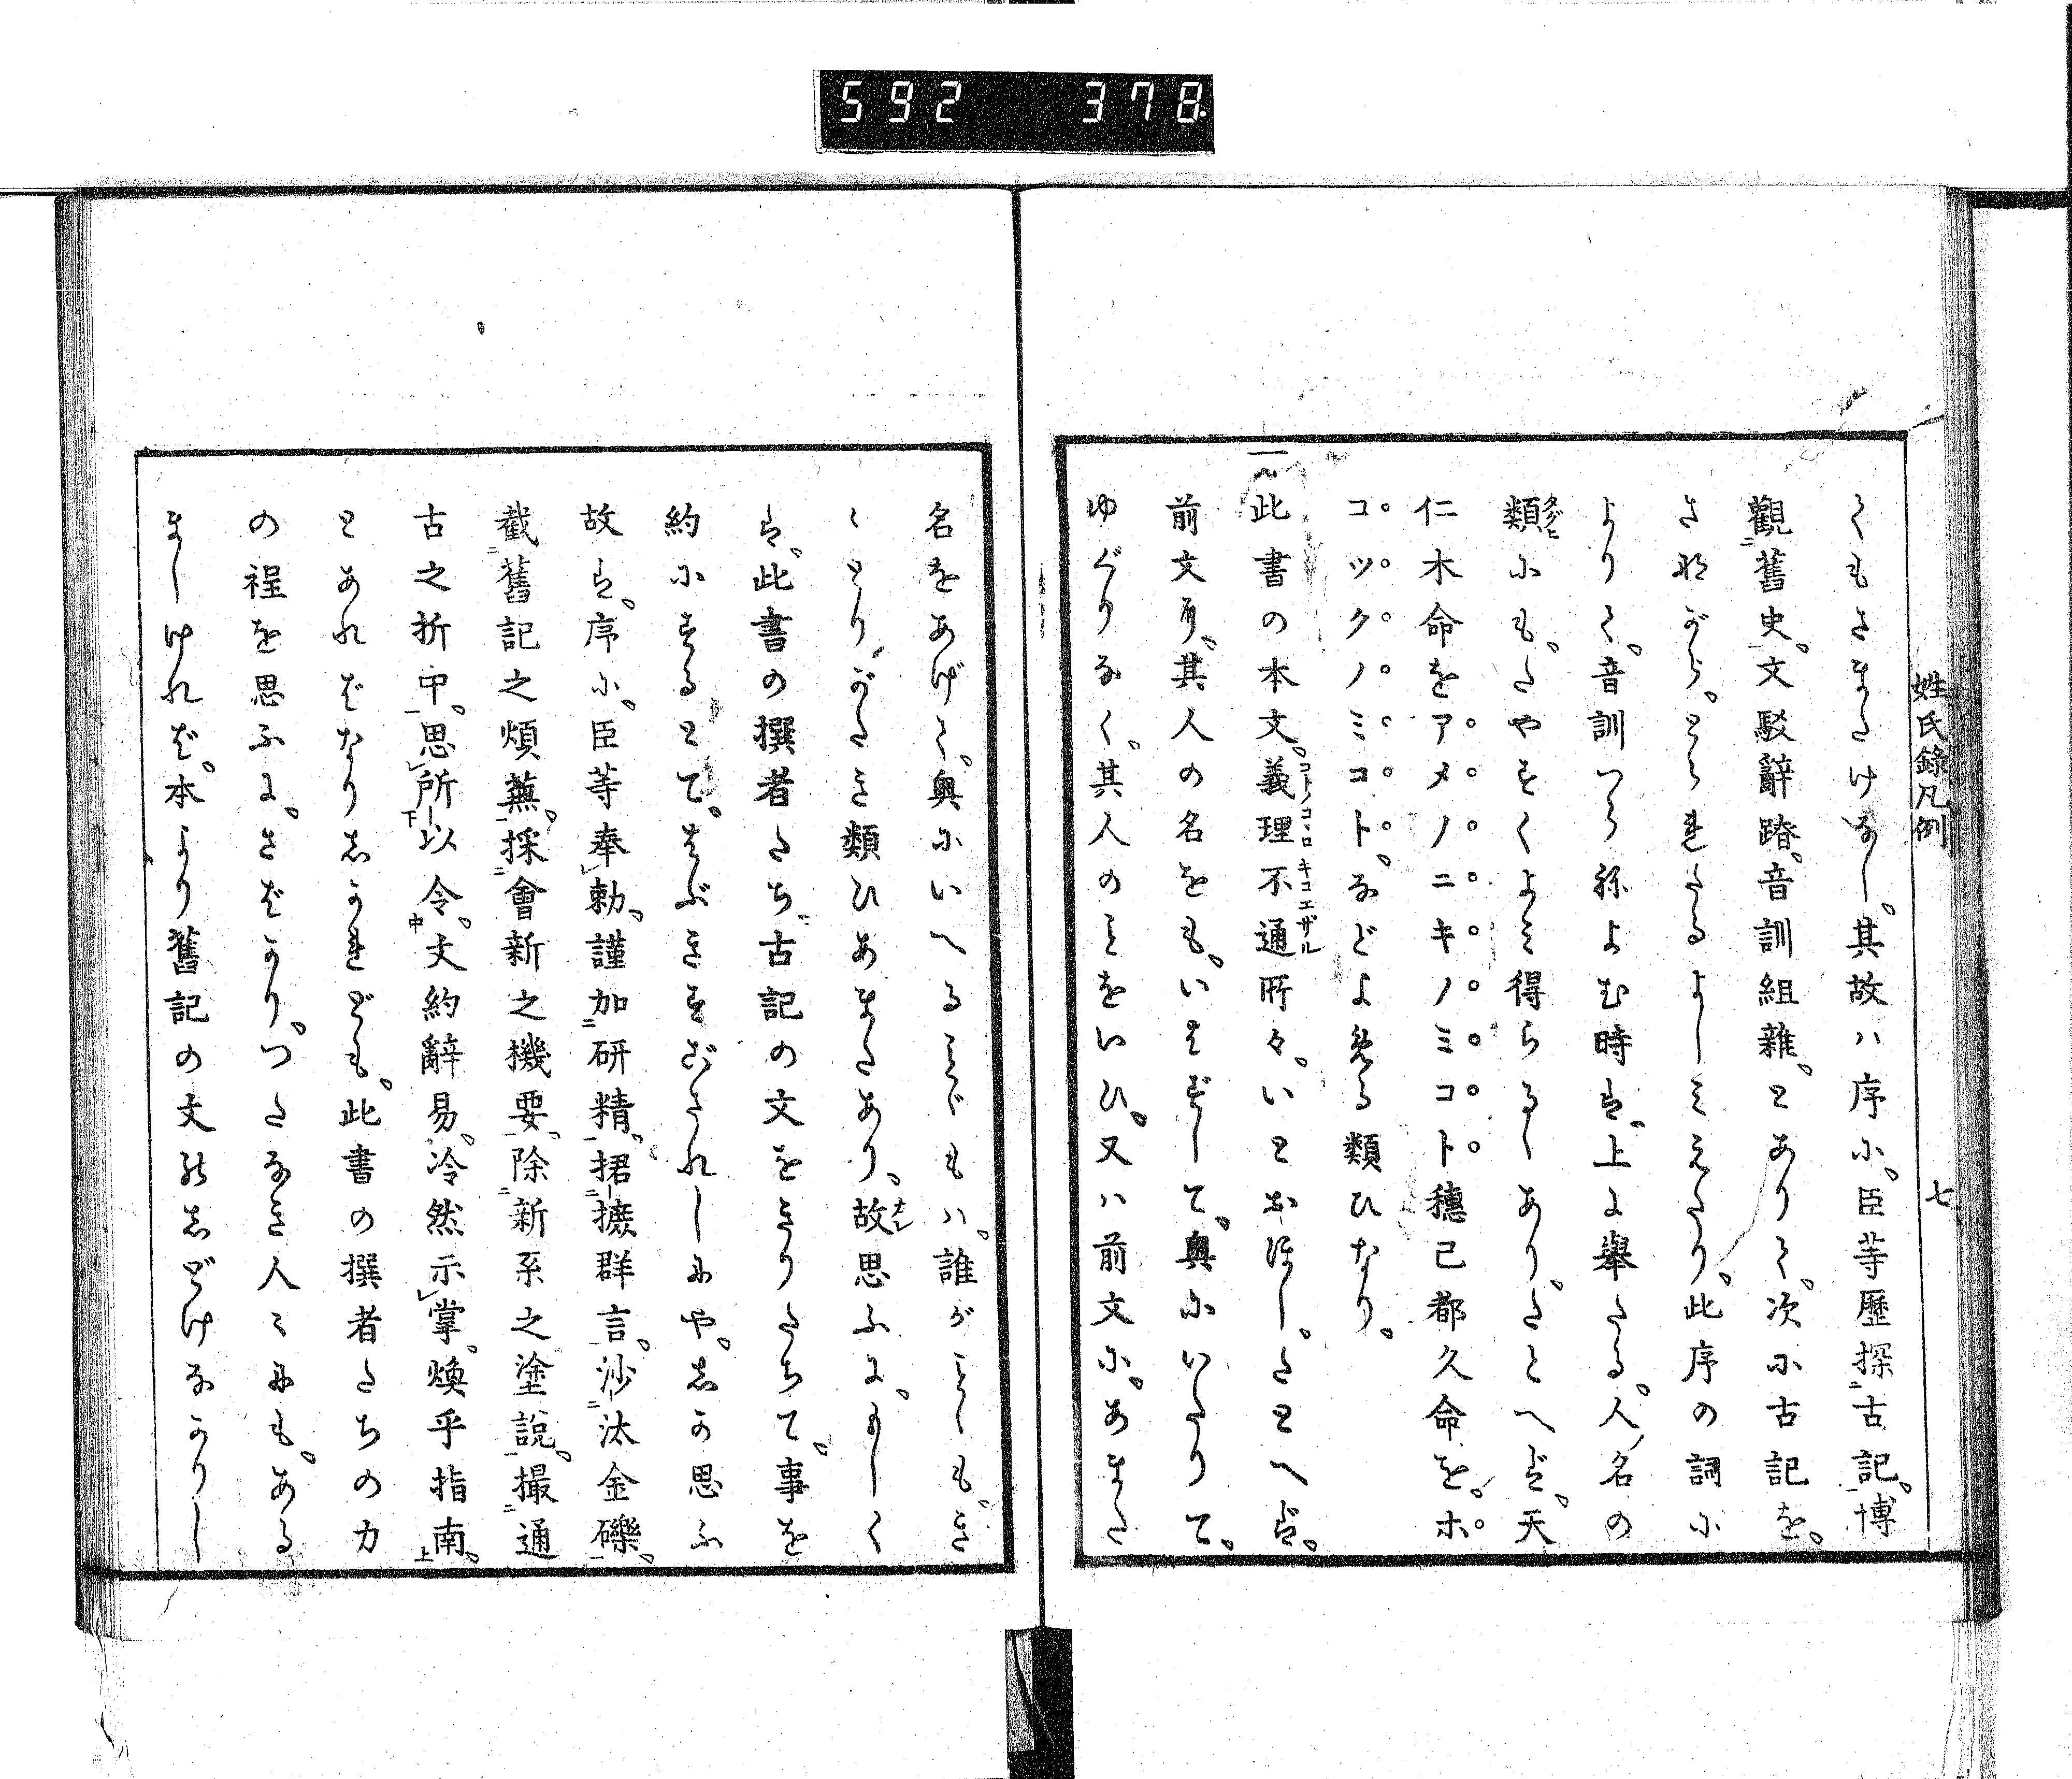 592 378
姓氏錄凡例 七
くもさまたけなし。其故ハ序に。臣等歷探二古記一。博
觀二舊史一。文駁辭踳。音訓組雜。とありて。次に古記を。
さながら。とられたるよしみえたり。此序の詞に
よりて。音訓つらねよむ時は。上に擧たる。人ノ名の
類にも。たやすくよみ得らるゝあり。たとへば。天
仁木命をアメノニキノミコト穗己都久命を。ホ
コツクノミコト。などよめる類ひなり。
一 此書の本文。義理不通所々。いとおほし。たとへば。
前文に。其人の名をも。いはずして。奧にいたりて。
ゆくりなく。其人のことをいひ。又ハ前文に。あまた
名をあげて。奧にいへることどもハ。誰がことゝも。き
ゝとりがたき類ひあまたあり。故思ふに。もしく
は。此書の撰者たち。古記の文をきりたちて。事を
約にするとて。はぶきすぐされしにや。しか思ふ
故は。序に。臣等奉レ勅。謹加二研精一。捃二摭群言一。沙二汰金礫一。
截二舊記之煩蕪一。採二會新之機要一。除二新系之塗說一。撮二通
古之折中一。思レ所下以令中。文約辭易。冷然示レ掌。煥乎指南上。
とあればなりしかれども。此書の撰者たちの力
の程を思ふに。さばかり。つたなき人々にも。ある
ましければ。本より舊記の文のしどけなかりし